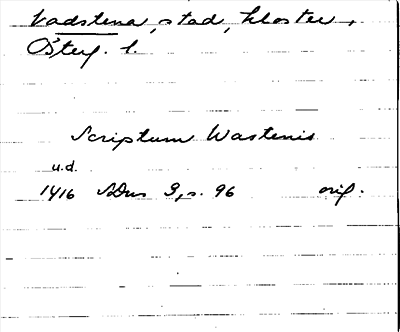 Vadstena, stad, kloster,
Österg. l.
Scriptum Wastenis
u.d.
1416 SDns 3, s. 96 orig.